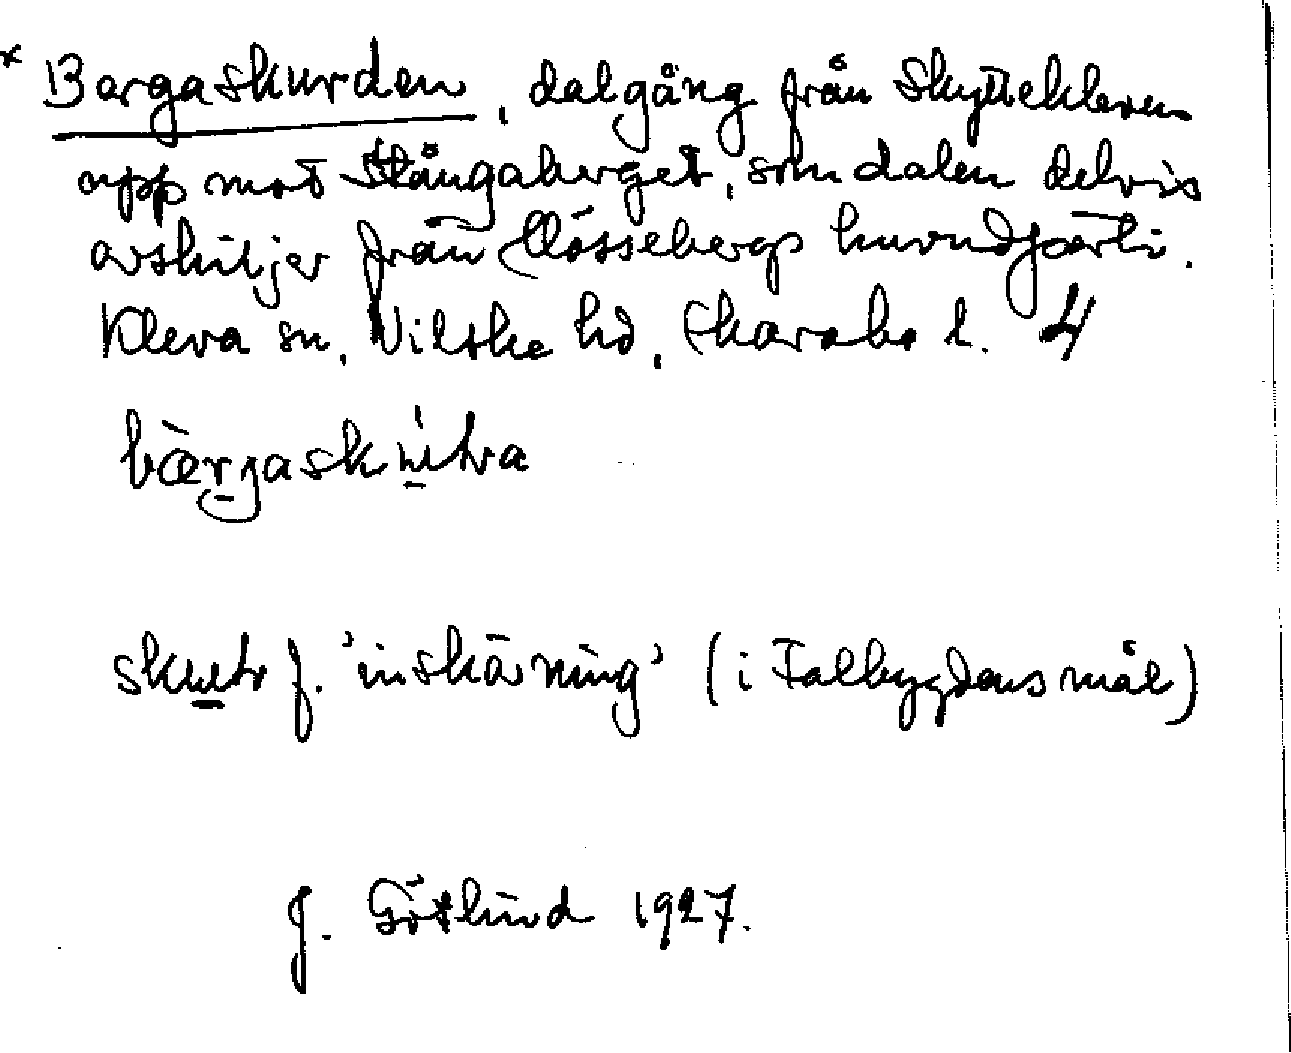 * Bargaskurden, dalgång från Skytteklevens
upp mot Stångaberget, som dalen delvis
avskiljer från Mössebergs huvudparti.
Kleva sn, Vilske hd, Skarabo l. 4
bærgask
f. 'inskärning' (i Falbygdens mål)
J. Götlind 1927.